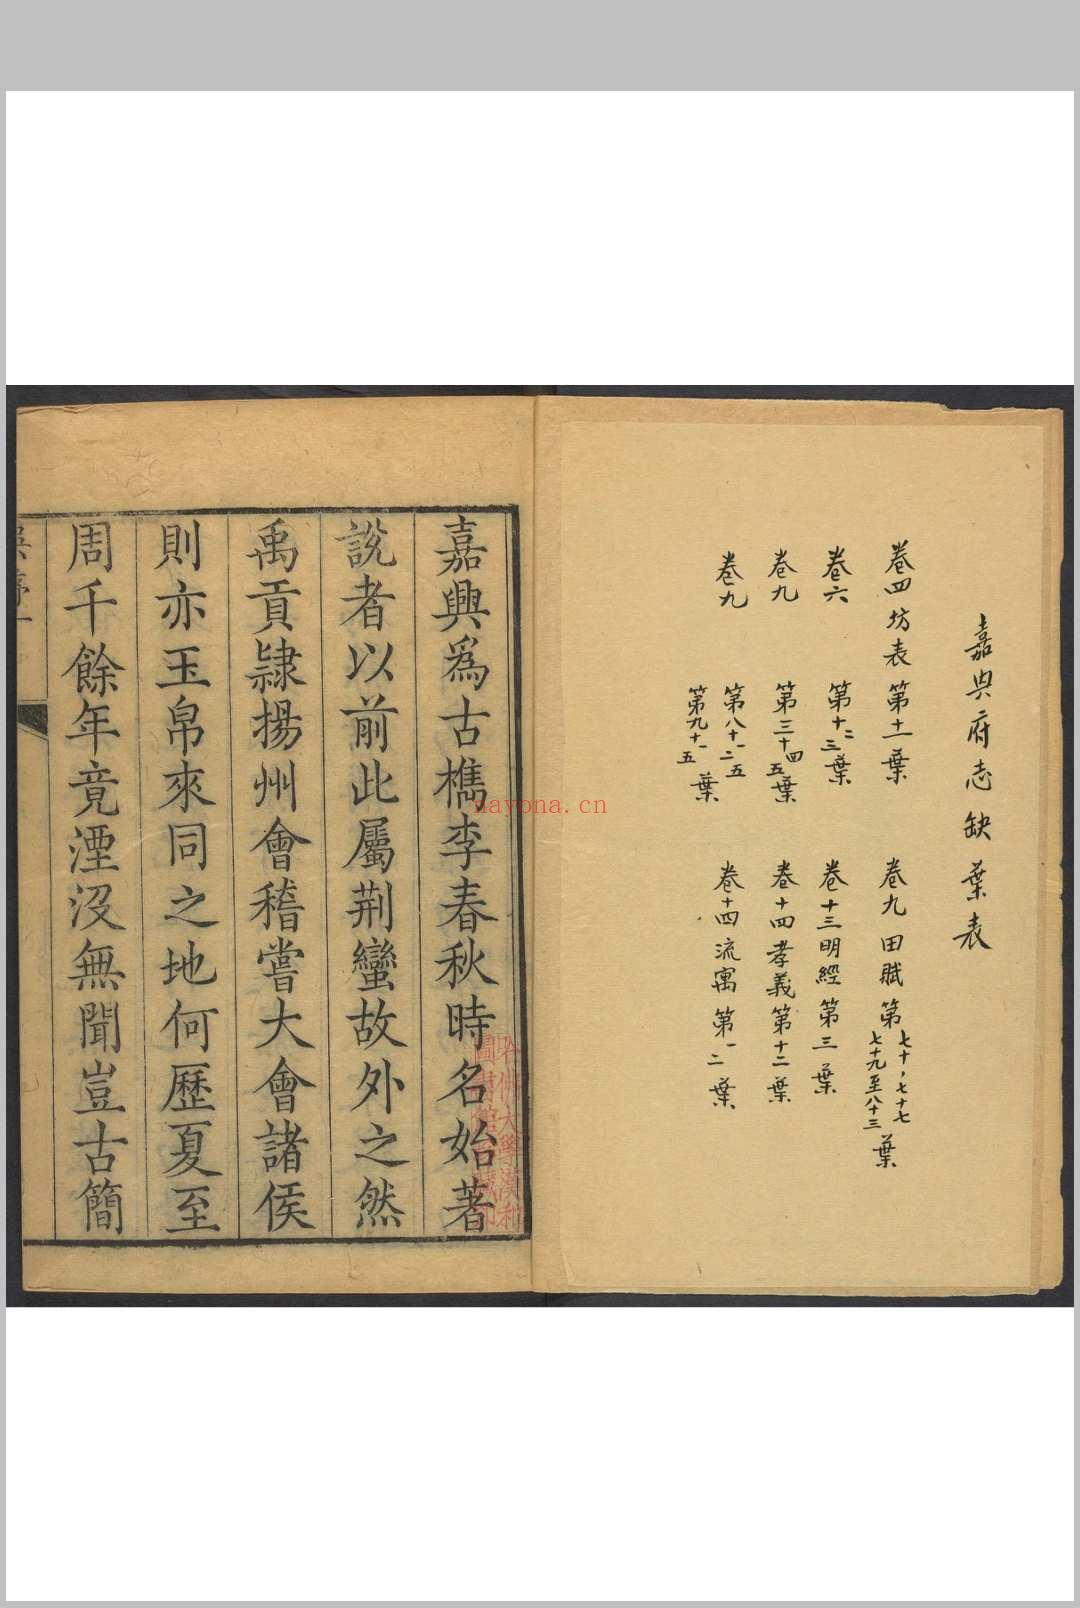 嘉興府志缺葉表
卷四坊表第十一葉
卷六 第十二三葉
卷九 第三十四五葉
卷九 第八十一二五
第九十一五葉
卷九田賦第七十、七十七
七十九至八十三葉
卷十三明經第三葉
卷十四孝義第十二葉
卷十四流寓第一二葉
嘉興爲古檇李春秋時名始著
說者以前此屬荆蠻故外之然
禹貢隸揚州會稽嘗大會諸侯
則亦玉帛來同之地何歷夏至
周千餘年竟湮沒無聞豈古簡
nayona.cn